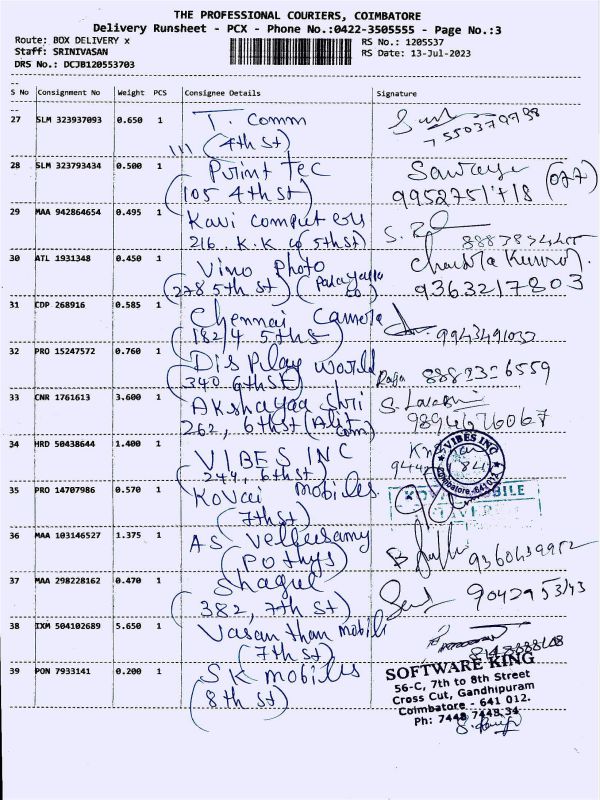 THE PROFESSIONAL COURIERS, COIMBATORE
Delivery Runsheet - PCX - Phone No.:0422-3505555 - Page No.:3
Route: BOX DELIVERY x
RS No.: 1205537
Staff: SRINIVASAN
RS Date: 13-Jul-2023
DRS No.: DCJB120553703
S No Consignment No Weight PCS Consignee Details Signature
27 SLM 323937093 0.650 1 T. Comm
(4th St)
28 SLM 323793434 0.500 1 Print Tec
(105 4th St) 9952751718 (077)
29 MAA 942864654 0.495 1 Kavi Computers
216, K.K 5th St)
30 ATL 1931348 0.450 1 Vino Photo
(278 5th St) 9363217803
31 CDP 268916 0.585 1 Chennai Camera
(182/4 5th S 9943491032
32 PRO 15247572 0.760 1 Display World
(340 6th St) Raja 8882326559
33 CNR 1761613 3.600 1 Akshayaa Shri
262, 6th St 9894676067
34 HRD 50438644 1.400 1 VIBES INC
244, 6th St)
VIBES INC
Coimbatore - 641 012
35 PRO 14707986 0.570 1 Kovai Mobiles
(7th St)
36 MAA 103146527 1.375 1 AS Vellusamy
(Pothys)
37 MAA 298228162 0.470 1 Shagul
(382, 7th St)
38 IXM 504102689 5.650 1 Vasanthan Mobile
(7th St)
39 PON 7933141 0.200 1 SK Mobiles
(8th St)
SOFTWARE KING
56-C, 7th to 8th Street
Cross Cut, Gandhipuram
Coimbatore - 641 012.
Ph: 7448 7448 34